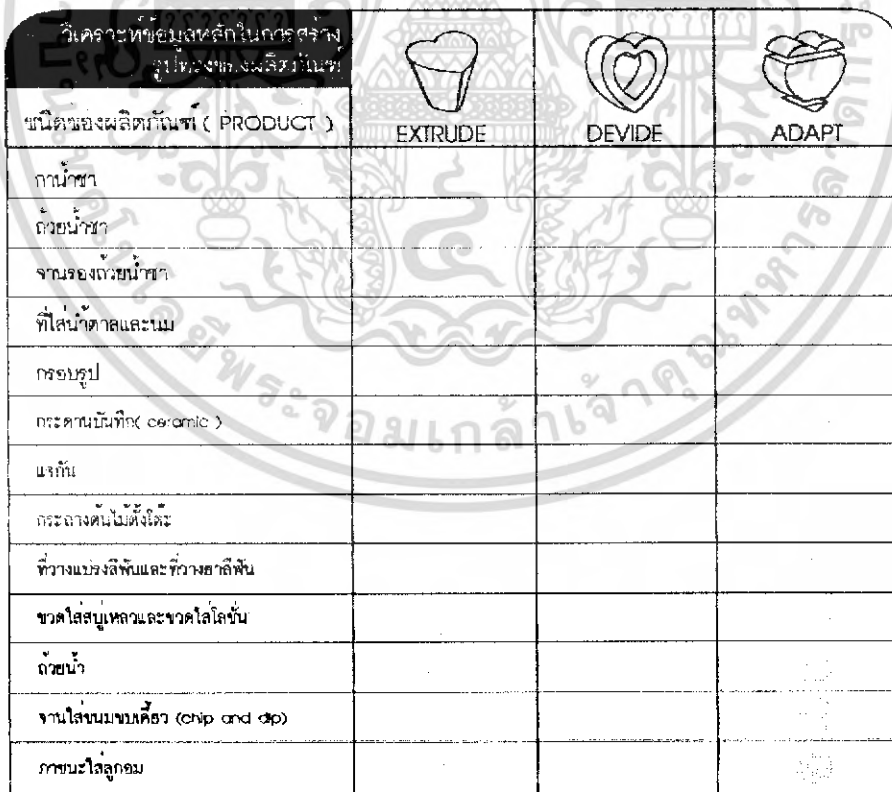 วิเคราะห์ข้อมูลหลักในการสร้าง
รูปทรงของผลิตภัณฑ์
ชนิดของผลิตภัณฑ์ ( PRODUCT )
EXTRUDE
DEVIDE
ADAPT
กาน้ำชา
ถ้วยน้ำชา
จานรองถ้วยน้ำชา
ที่ใส่น้ำตาลและนม
กรอบรูป
กระดานบันทึก( ceramic )
แจกัน
กระถางต้นไม้ตั้งโต๊ะ
ที่วางแปรงสีฟันและที่วางยาสีฟัน
ขวดใส่สบู่เหลวและขวดใส่โลชั่น
ถ้วยน้ำ
จานใส่ขนมขบเคี้ยว (chip and dip)
ภาชนะใส่ลูกอม
พระจอมเกล้าเจ้าคุณทหารลาด